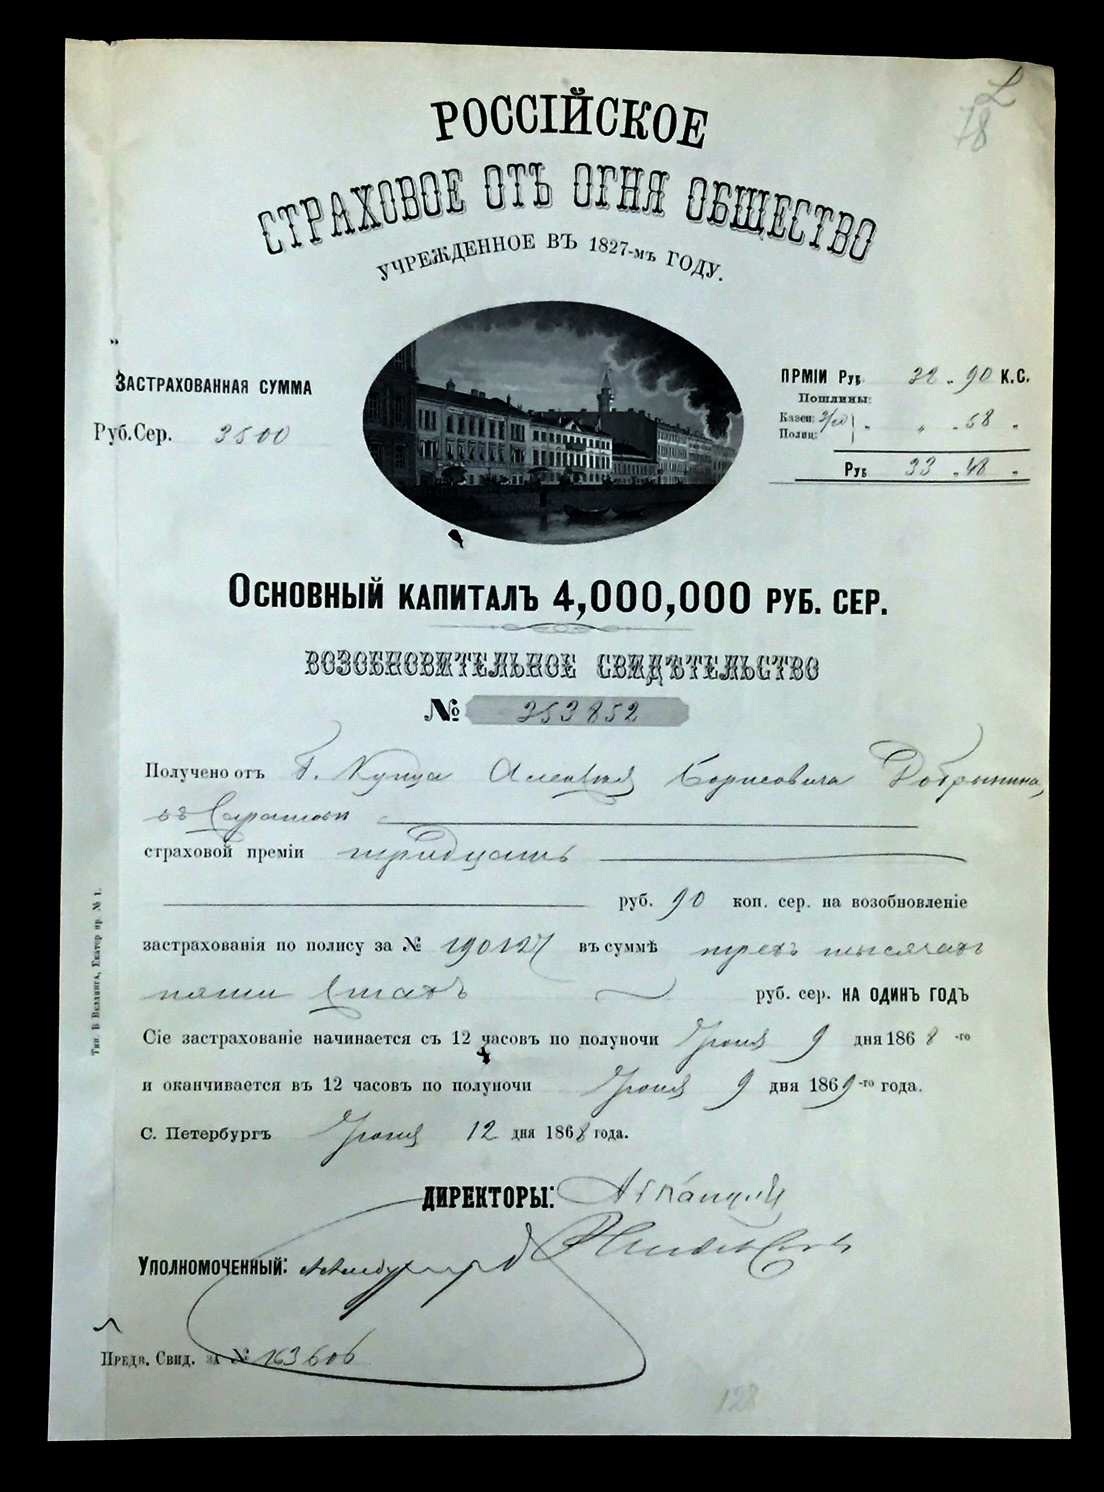 L
78
РОССІЙСКОЕ
СТРАХОВОЕ ОТЪ ОГНЯ ОБЩЕСТВО
УЧРЕЖДЕННОЕ ВЪ 1827-мъ ГОДУ.
ЗАСТРАХОВАННАЯ СУММА
Руб. Сер. 3500
ПРМІИ Руб. 32 - 90 К.С.
Пошлины:
Казен:
Полиц: " " - 58 "
Руб 33 - 48 "
ОСНОВНЫЙ КАПИТАЛЪ 4,000,000 РУБ. СЕР.
ВОЗОБНОВИТЕЛЬНОЕ СВИДѢТЕЛЬСТВО
№ 353852
Получено отъ Г. Купца Алексѣя Борисовича Добрынина,
въ Саратовѣ
страховой преміи тридцать
руб. 90 коп. сер. на возобновленіе
застрахованія по полису за № 190127 въ суммѣ трехъ тысячахъ
пяти стахъ руб. сер. НА ОДИНЪ ГОДЪ
Сіе застрахованіе начинается съ 12 часовъ по полуночи Іюня 9 дня 1868-го
и оканчивается въ 12 часовъ по полуночи Іюня 9 дня 1869-го года.
С. Петербургъ Іюня 12 дня 1868 года.
ДИРЕКТОРЫ:
УПОЛНОМОЧЕННЫЙ:
Предв. Свид. за № 163606
128
Тип. В Веллинга, Екатер пр. № 1.